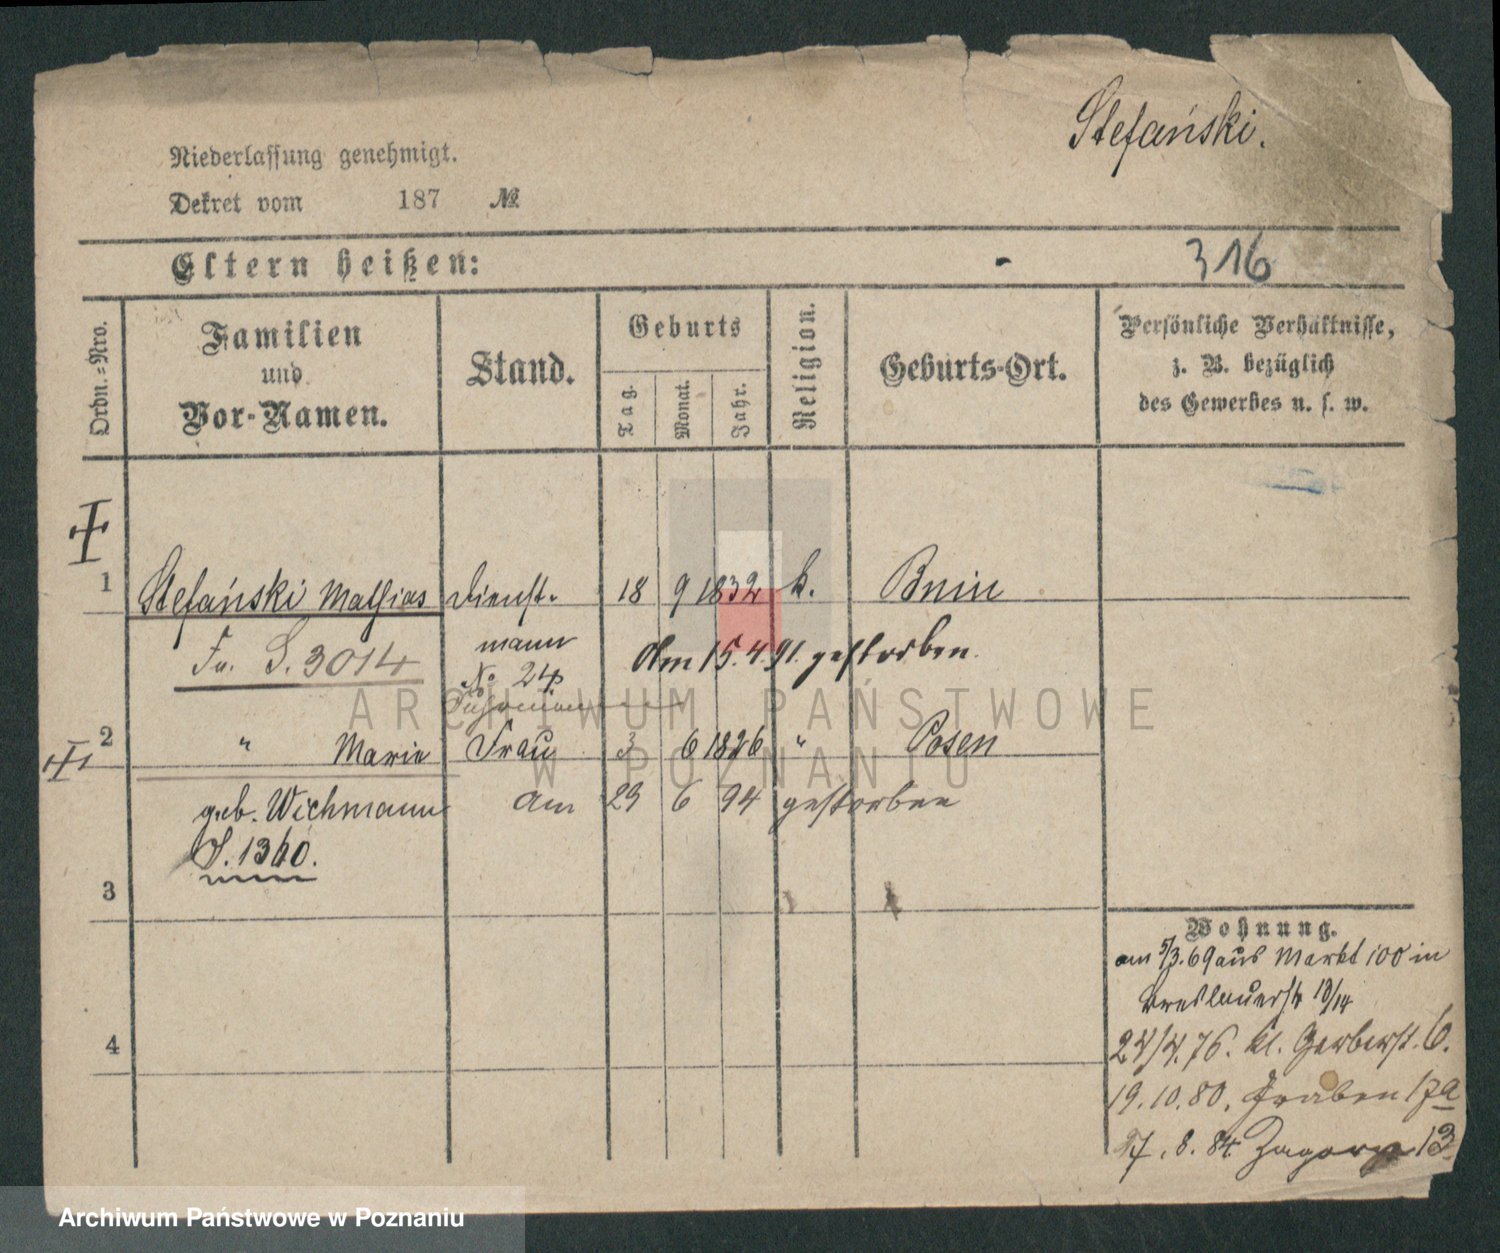 Stefański.
Niederlassung genehmigt.
Dekret vom 187 №
Eltern heißen: -
316
Ordn.-Nro.
Familien
und
Vor-Namen.
Stand.
Geburts
Tag.
Monat.
Jahr.
Religion.
Geburts-Ort.
Persönliche Verhältnisse,
z. B. bezüglich
des Gewerbes u. s. w.
1 Stefański Mathias Dienst- 18 9 1832 k. Bnin
Fu. S. 3014 mann Am 15.4.91. gestorben.
No 24
2 " Marie Frau 3 6 1826 " Posen
geb. Wichmann am 29 6 94 gestorben
S. 1360.
3
4
Wohnung.
am 5/3.69 aus Markt 100 in
Breslauerstr 13/14
24/4.76. kl. Gerberst. 6.
19.10.80. Graben 17a
27.8.84. Zagorze 13
ARCHIWUM PAŃSTWOWE
W POZNANIU
Archiwum Państwowe w Poznaniu